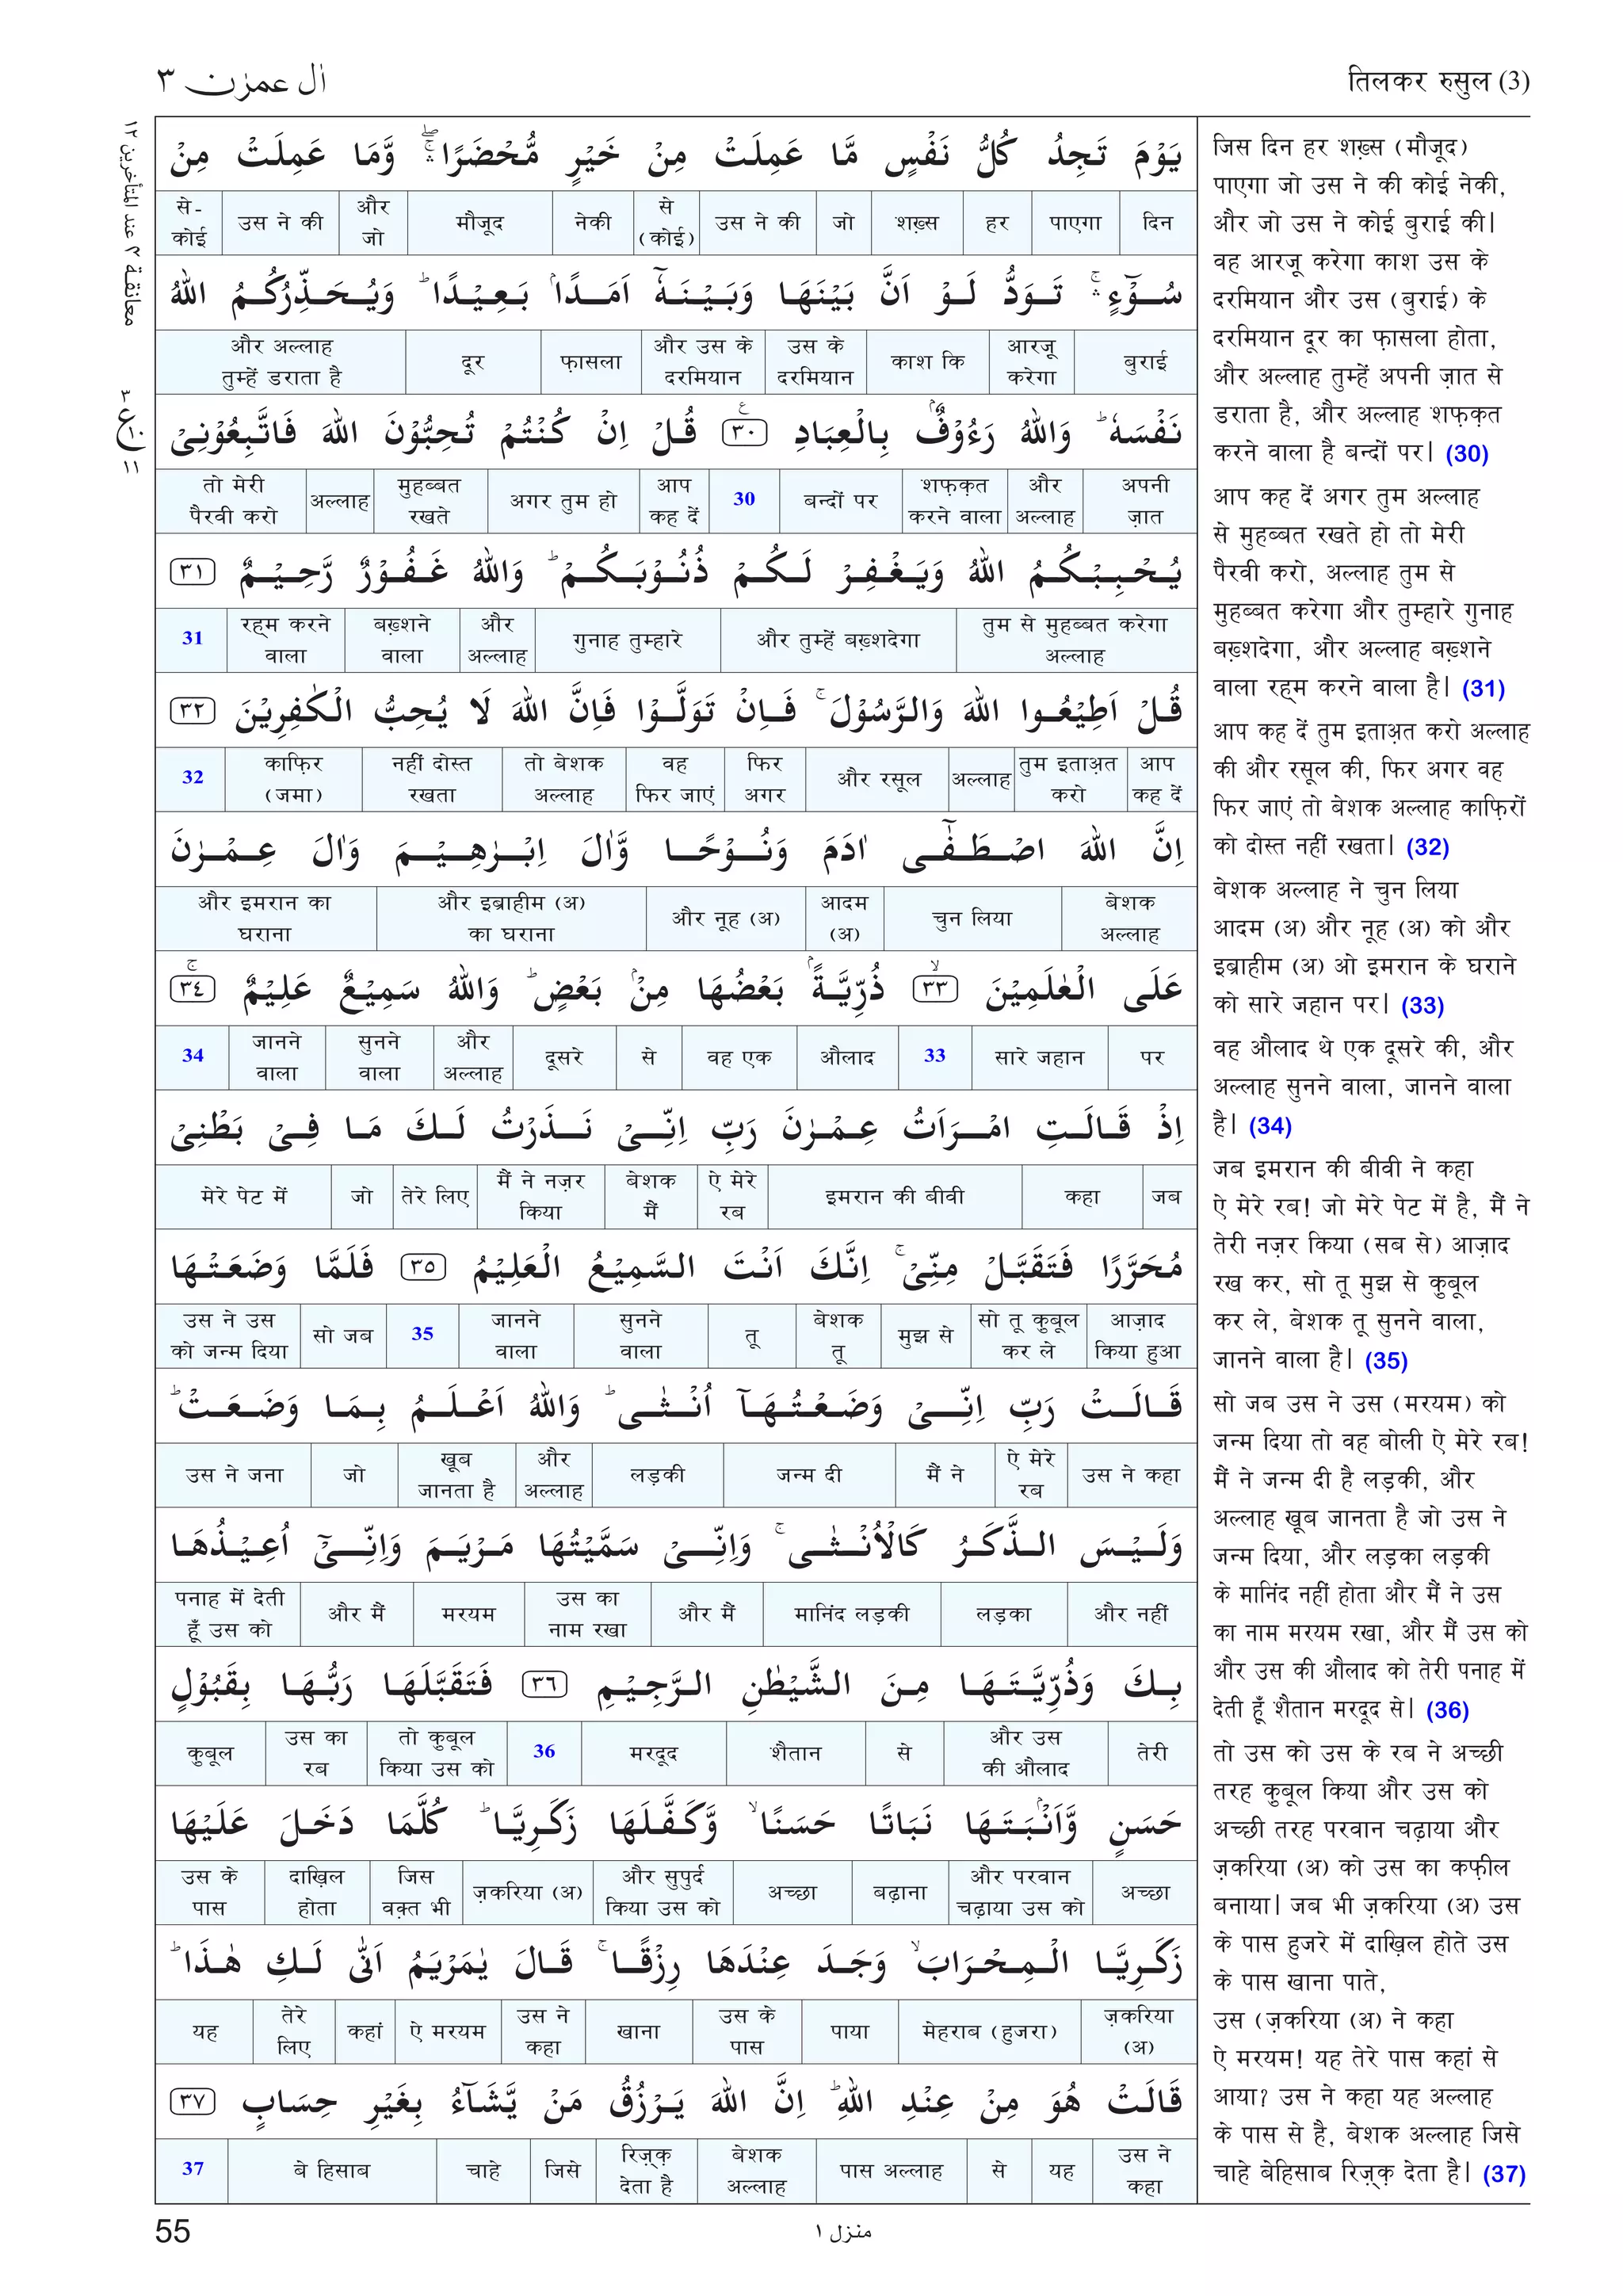 اٰل عمرٰن ٣
तिलकर रुसुल (3)
معانقـة ٢ عند المتأخرين ١٢
يَوۡمَ تَجِدُ كُلُّ نَفۡسٍ مَّا عَمِلَتۡ مِنۡ خَيۡرٍ مُّحۡضَرًا ۛۚۖ وَّمَا عَمِلَتۡ مِنۡ
दिन | पाएगा | हर | शख़्स | जो | उस ने की | से (कोई) | नेकी | मौजूद | और जो | उस ने की | से-कोई
سُوۡٓءٍ ۛۚ تَوَدُّ لَوۡ اَنَّ بَيۡنَهَا وَبَيۡنَهٗۤ اَمَدًۢا بَعِيۡدًا ؕ وَيُحَذِّرُكُمُ اللّٰهُ
बुराई | आरजू करेगा | काश कि | उस के दरमियान | और उस के दरमियान | फ़ासला | दूर | और अल्लाह तुम्हें डराता है
نَفۡسَهٗ ؕ وَاللّٰهُ رَءُوۡفٌۢ بِالۡعِبَادِ ٣٠ قُلۡ اِنۡ كُنۡتُمۡ تُحِبُّوۡنَ اللّٰهَ فَاتَّبِعُوۡنِىۡ
अपनी ज़ात | और अल्लाह | शफ़क़त करने वाला | बन्दों पर | 30 | आप कह दें | अगर तुम हो | मुहब्बत रखते | अल्लाह | तो मेरी पैरवी करो
يُحۡبِبۡكُمُ اللّٰهُ وَيَغۡفِرۡ لَـكُمۡ ذُنُوۡبَكُمۡؕ وَاللّٰهُ غَفُوۡرٌ رَّحِيۡمٌ ٣١
तुम से मुहब्बत करेगा अल्लाह | और तुम्हें बख़्शदेगा | गुनाह तुम्हारे | और अल्लाह | बख़्शने वाला | रह्म करने वाला | 31
قُلۡ اَطِيۡعُوا اللّٰهَ وَالرَّسُوۡلَ ۚ فَاِنۡ تَوَلَّوۡا فَاِنَّ اللّٰهَ لَا يُحِبُّ الۡكٰفِرِيۡنَ ٣٢
आप कह दें | तुम इताअ़त करो | अल्लाह | और रसूल | फिर अगर | वह फिर जाएं | तो बेशक अल्लाह | नहीं दोस्त रखता | काफ़िर (जमा) | 32
اِنَّ اللّٰهَ اصۡطَفٰۤى اٰدَمَ وَنُوۡحًا وَّاٰلَ اِبۡرٰهِيۡمَ وَاٰلَ عِمۡرٰنَ
बेशक अल्लाह | चुन लिया | आदम (अ) | और नूह (अ) | और इब्राहीम (अ) का घराना | और इमरान का घराना
عَلَى الۡعٰلَمِيۡنَ ٣٣ ذُرِّيَّةًۢ بَعۡضُهَا مِنۡۢ بَعۡضٍؕ وَاللّٰهُ سَمِيۡعٌ عَلِيۡمٌ ٣٤
पर | सारे जहान | 33 | औलाद | वह एक | से | दूसरे | और अल्लाह | सुनने वाला | जानने वाला | 34
اِذۡ قَالَتِ امۡرَاَتُ عِمۡرٰنَ رَبِّ اِنِّىۡ نَذَرۡتُ لَـكَ مَا فِىۡ بَطۡنِىۡ
जब | कहा | इमरान की बीवी | ऐ मेरे रब | बेशक मैं | मैं ने नज़र किया | तेरे लिए | जो | मेरे पेट में
مُحَرَّرًا فَتَقَبَّلۡ مِنِّىۡۚ اِنَّكَ اَنۡتَ السَّمِيۡعُ الۡعَلِيۡمُ ٣٥ فَلَمَّا وَضَعَتۡهَا
आज़ाद किया हुआ | सो तू कुबूल कर ले | मुझ से | बेशक तू | तू | सुनने वाला | जानने वाला | 35 | सो जब | उस ने उस को जन्म दिया
قَالَتۡ رَبِّ اِنِّىۡ وَضَعۡتُهَاۤ اُنۡثٰىؕ وَاللّٰهُ اَعۡلَمُ بِمَا وَضَعَتۡؕ
उस ने कहा | ऐ मेरे रब | मैं ने | जन्म दी | लड़की | और अल्लाह | खूब जानता है | जो | उस ने जना
وَلَيۡسَ الذَّكَرُ كَالۡاُنۡثٰىۚ وَاِنِّىۡ سَمَّيۡتُهَا مَرۡيَمَ وَاِنِّىۡۤ اُعِيۡذُهَا
और नहीं | लड़का | मानिंद लड़की | और मैं | उस का नाम रखा | मरयम | और मैं | पनाह में देती हूँ उस को
بِكَ وَذُرِّيَّتَهَا مِنَ الشَّيۡطٰنِ الرَّجِيۡمِ ٣٦ فَتَقَبَّلَهَا رَبُّهَا بِقَبُوۡلٍ
तेरी | और उस की औलाद | से | शैतान | मरदूद | 36 | तो कुबूल किया उस को | उस का रब | कुबूल
حَسَنٍ وَّاَنۡۢبَتَهَا نَبَاتًا حَسَنًا ۙ وَّكَفَّلَهَا زَكَرِيَّا ؕ كُلَّمَا دَخَلَ عَلَيۡهَا
अच्छा | और परवान चढ़ाया उस को | बढ़ाना | अच्छा | और सुपुर्द किया उस को | ज़करिया (अ) | जिस वक़्त भी | दाख़िल होता | उस के पास
زَكَرِيَّا الۡمِحۡرَابَۙ وَجَدَ عِنۡدَهَا رِزۡقًا ۚ قَالَ يٰمَرۡيَمُ اَنّٰى لَـكِ هٰذَا ؕ
ज़करिया (अ) | मेहराब (हुजरा) | पाया | उस के पास | खाना | उस ने कहा | ऐ मरयम | कहां | तेरे लिए | यह
قَالَتۡ هُوَ مِنۡ عِنۡدِ اللّٰهِؕ اِنَّ اللّٰهَ يَرۡزُقُ مَنۡ يَّشَآءُ بِغَيۡرِ حِسَابٍ ٣٧
उस ने कहा | यह | से | पास अल्लाह | बेशक अल्लाह | रिज़्क़ देता है | जिसे | चाहे | बे हिसाब | 37
٣
ع
١٠
١١
जिस दिन हर शख़्स (मौजूद)
पाएगा जो उस ने की कोई नेकी,
और जो उस ने कोई बुराई की।
वह आरजू करेगा काश उस के
दरमियान और उस (बुराई) के
दरमियान दूर का फ़ासला होता,
और अल्लाह तुम्हें अपनी ज़ात से
डराता है, और अल्लाह शफ़क़त
करने वाला है बन्दों पर। (30)
आप कह दें अगर तुम अल्लाह
से मुहब्बत रखते हो तो मेरी
पैरवी करो, अल्लाह तुम से
मुहब्बत करेगा और तुम्हारे गुनाह
बख़्शदेगा, और अल्लाह बख़्शने
वाला रह्म करने वाला है। (31)
आप कह दें तुम इताअ़त करो अल्लाह
की और रसूल की, फिर अगर वह
फिर जाएं तो बेशक अल्लाह काफ़िरों
को दोस्त नहीं रखता। (32)
बेशक अल्लाह ने चुन लिया
आदम (अ) और नूह (अ) को और
इब्राहीम (अ) ओ इमरान के घराने
को सारे जहान पर। (33)
वह औलाद थे एक दूसरे की, और
अल्लाह सुनने वाला, जानने वाला
है। (34)
जब इमरान की बीवी ने कहा
ऐ मेरे रब! जो मेरे पेट में है, मैं ने
तेरी नज़र किया (सब से) आज़ाद
रख कर, सो तू मुझ से कुबूल
कर ले, बेशक तू सुनने वाला,
जानने वाला है। (35)
सो जब उस ने उस (मरयम) को
जन्म दिया तो वह बोली ऐ मेरे रब!
मैं ने जन्म दी है लड़की, और
अल्लाह खूब जानता है जो उस ने
जन्म दिया, और लड़का लड़की
के मानिंद नहीं होता और मैं ने उस
का नाम मरयम रखा, और मैं उस को
और उस की औलाद को तेरी पनाह में
देती हूँ शैतान मरदूद से। (36)
तो उस को उस के रब ने अच्छी
तरह कुबूल किया और उस को
अच्छी तरह परवान चढ़ाया और
ज़करिया (अ) को उस का कफ़ील
बनाया। जब भी ज़करिया (अ) उस
के पास हुजरे में दाख़िल होते उस
के पास खाना पाते,
उस (ज़करिया (अ) ने कहा
ऐ मरयम! यह तेरे पास कहां से
आया? उस ने कहा यह अल्लाह
के पास से है, बेशक अल्लाह जिसे
चाहे बेहिसाब रिज़्क़ देता है। (37)
55
منزل ١